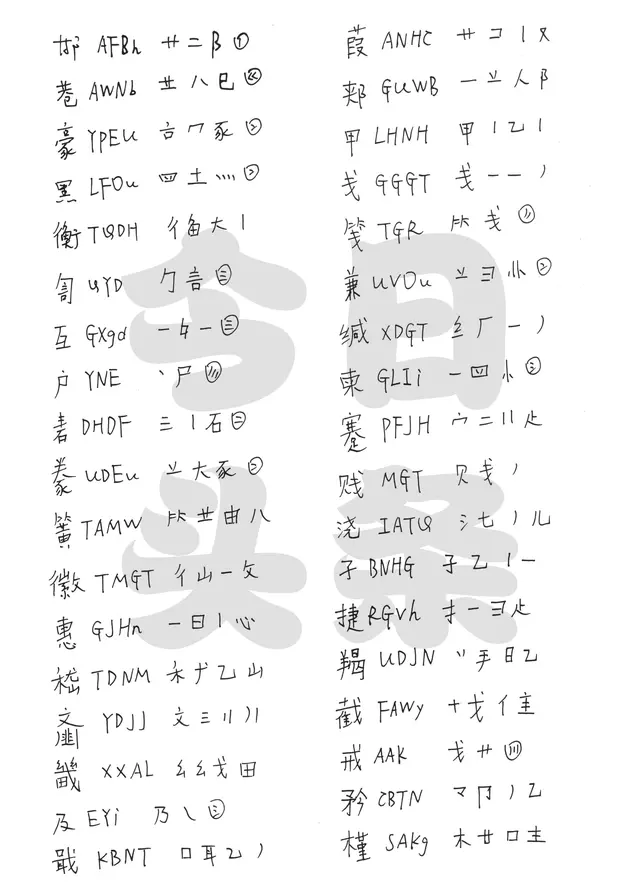 邯 AFBh 艹 二 阝
巷 AWNb 龷 八 巳
豪 YPEu 亠 冖 豕
黑 LFOu 四 土 灬
衡 TQDH 彳 大 丨
訇 QYD 勹 言 ㊂
互 GXgd 一 彑 一 ㊂
户 YNE 丶 尸
砉 DHDF 三 丨 石 ㊁
豢 UDEu 丷 大 豕
簧 TAMW ⺮ 龷 由 八
徽 TMGT 彳 山 一 攵
惠 GJHn 一 日 丨 心
嵇 TDNM 禾 ナ 乙 山
齑 YDJJ 文 三 刂
畿 XXAL 幺 幺 戈 田
及 EYi 乃 ㇏
戢 KBNT 口 耳 乙 丿
葭 ANHC 艹 コ 丨 又
郏 GUWB 一 丷 人 阝
甲 LHNH 甲 丨 乙 丨
戋 GGGT 戋 一 一 丿
笺 TGR ⺮ 戋
兼 UVOu 丷 彐
缄 XDGT 纟 厂 一 丿
柬 GLIi 一 四 小
蹇 PFJH 宀 二 刂 龰
贱 MGT 贝 戋 丿
浇 IATQ 氵 七 丿 儿
孑 BNHG 孑 乙 丨 一
捷 RGVh 扌 一 彐 龰
羯 UDJN 丷 手 日 乙
截 FAWy 十 戈 亻 主
戒 AAK 戈 廾
矜 CBTN 龴 卩 丿 乙
槿 SAKg 木 廿 口 主
今日
头条